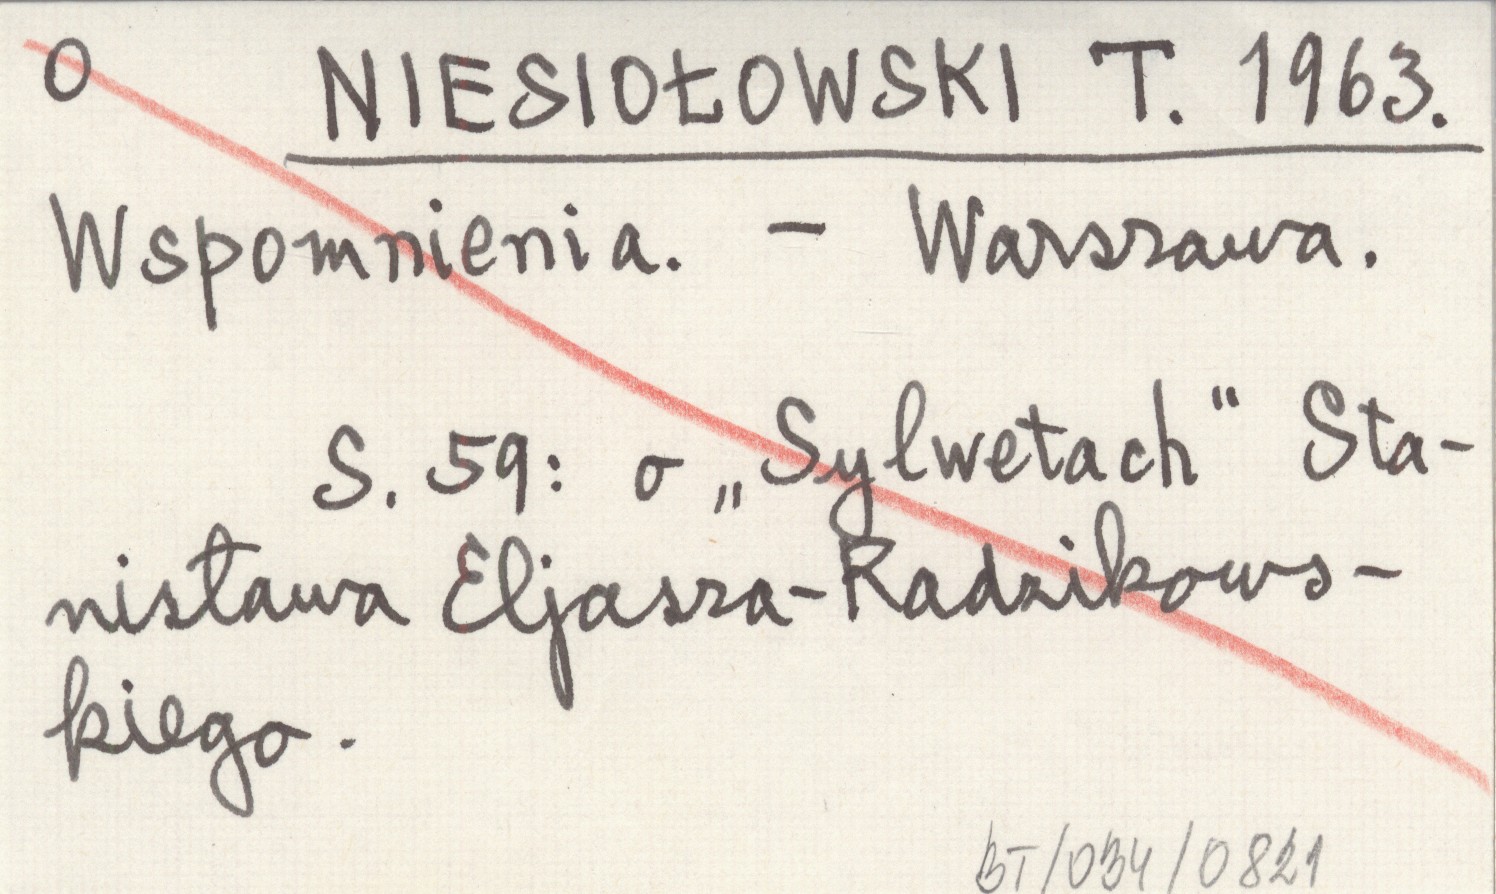 O NIESIOŁOWSKI T. 1963.
Wspomnienia. - Warszawa.
S. 59: o „Sylwetach" Sta-
nisława Eljasza-Radzikows-
kiego.
BT/034/0821